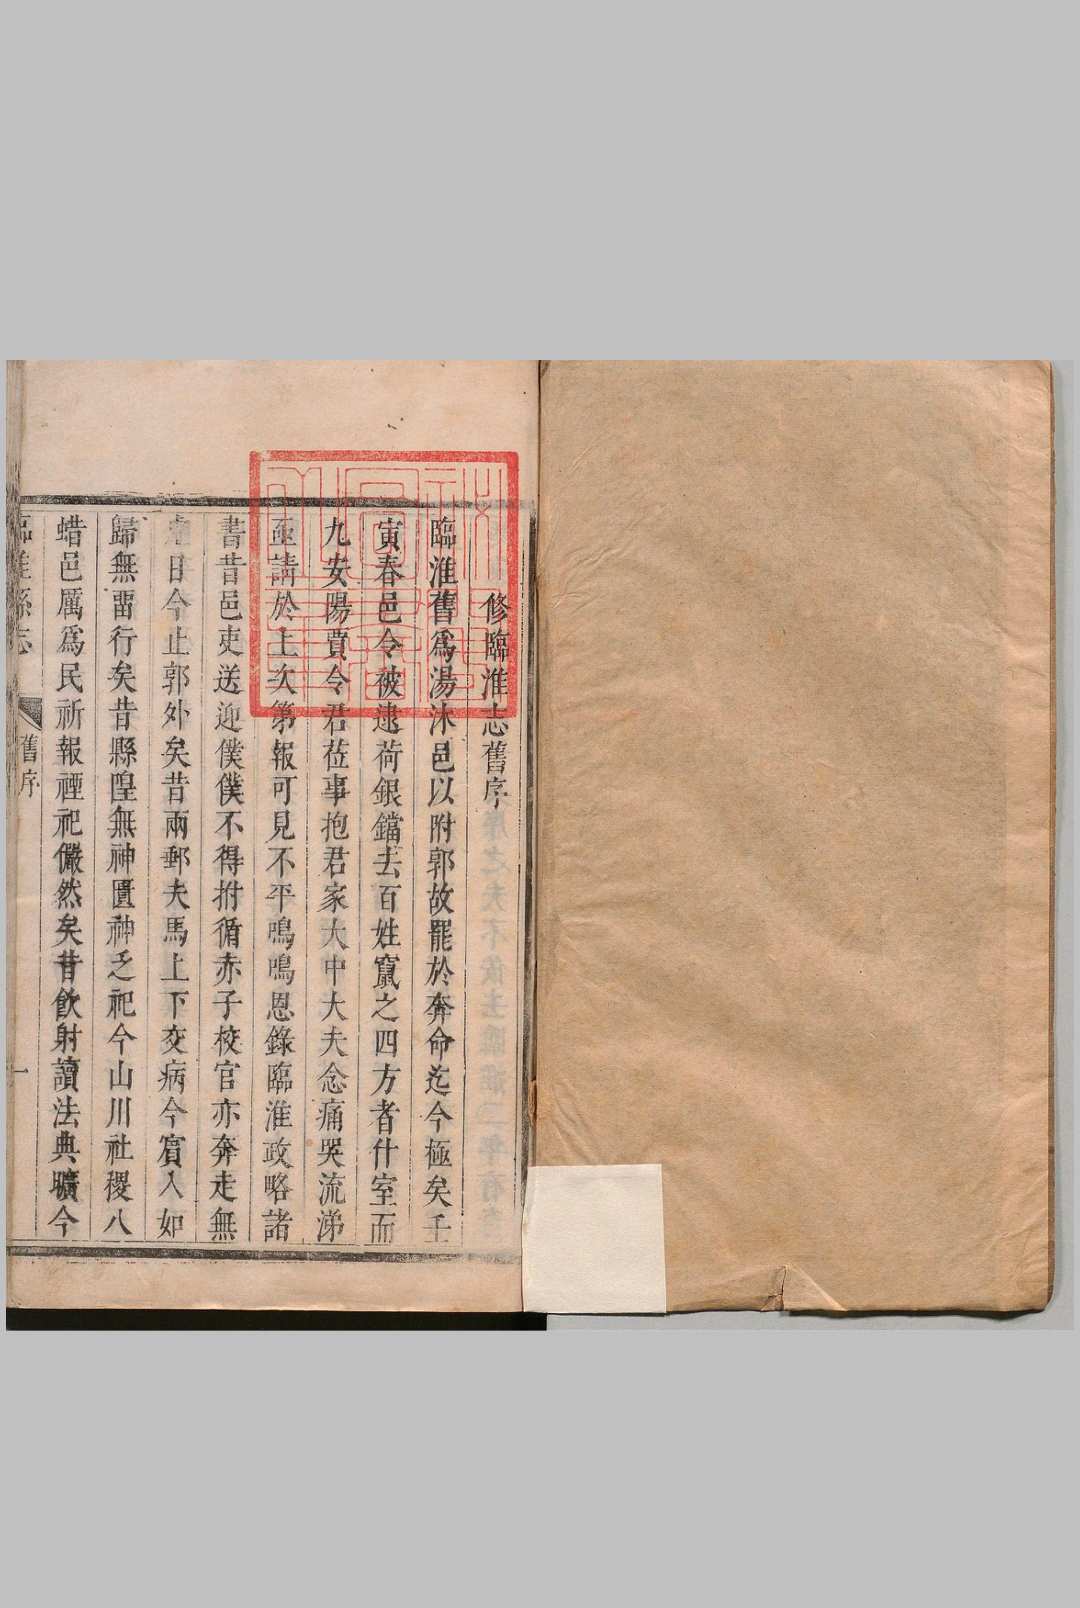 修臨淮志舊序
臨淮舊爲湯沐邑以附郭故罷於奔命迄今極矣壬
寅春邑令被逮荷銀鐺去百姓竄之四方者什室而
九安陽賁令君莅事抱君家大中大夫念痛哭流涕
亟請於上次第報可見不平鳴鳴恩錄臨淮政略諸
書昔邑吏送迎僕僕不得拊循赤子校官亦奔走無
日今止郭外矣昔兩郵夫馬上下交病今賓入如
歸無畱行矣昔縣隍無神匱神乏祀今山川社稷八
蜡邑厲爲民祈報禋祀儼然矣昔飲射讀法典曠今
臨淮縣志
舊序
一